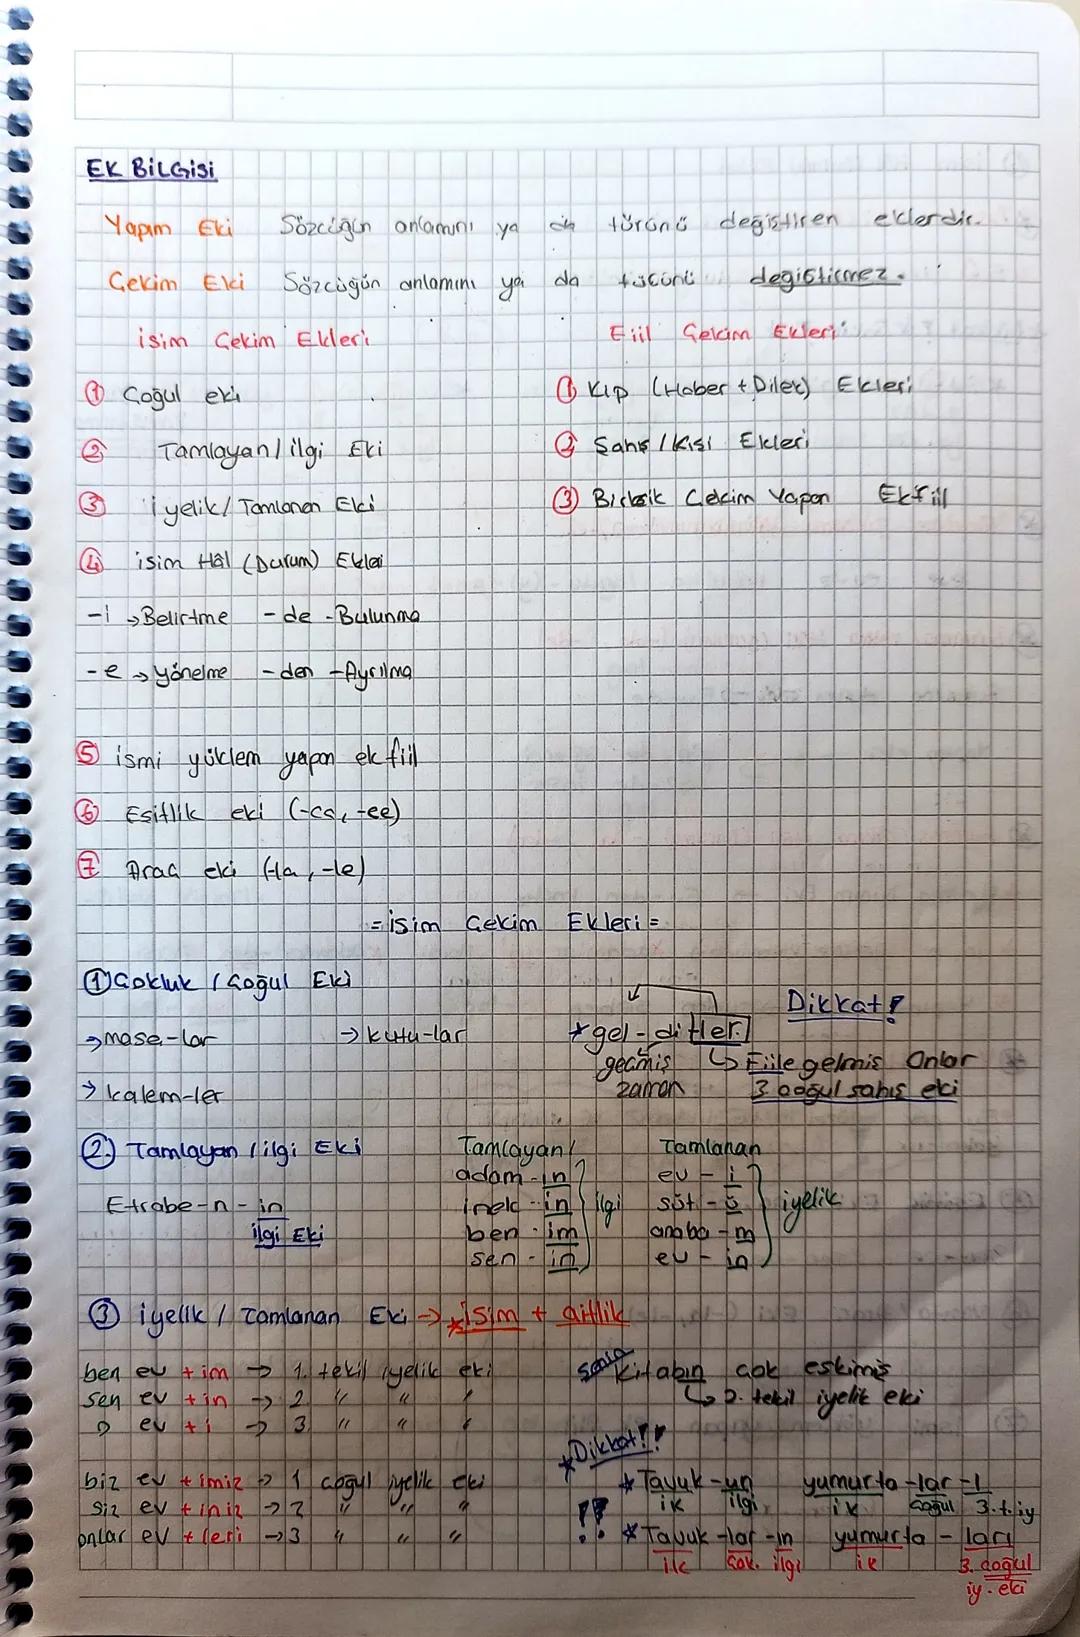 EK BİLGİSİ
Yapım Eki Sözcüğün anlamını ya da türünü değiştiren eklerdir.
Çekim Eki Sözcüğün anlamını ya da türünü değiştirmez.
İsim Çekim Ekleri Fiil Çekim Ekleri
① Çoğul eki ① Kip (Haber + Dilek) Ekleri
② Tamlayan / ilgi Eki ② Şahıs / Kişi Ekleri
③ İyelik / Tamlanan Eki ③ Birleşik Çekim Yapan Ekfiil
④ isim Hâl (Durum) Ekleri
-i → Belirtme -de - Bulunma
-e → yönelme -den → Ayrılma
⑤ ismi yüklem yapan ek fiil
⑥ Eşitlik eki (-ca, -ce)
⑦ Araç eki (-la, -le)
= İsim Çekim Ekleri =
① Çokluk / Çoğul Eki Dikkat!
→ masa-lar → kutu-lar * gel-di-ler
geçmiş zaman ↳ Fiile gelmiş Onlar
→ kalem-ler 3. çoğul şahıs eki
②. Tamlayan / ilgi Eki Tamlayan / Tamlanan
adam-ın ev-i
Etrabe-n-in inek-in ilgi süt-ü iyelik
ilgi Eki ben-im araba-m
sen-in ev-in
③ iyelik / Tamlanan Eki → * İsim + aitlik
ben ev + im → 1. tekil iyelik eki senin Kitabın çok eskimiş
sen ev + in → 2. " " " ↳ 2. tekil iyelik eki
o ev + i → 3. " " "
* Dikkat!!
biz ev + imiz → 1 çoğul iyelik eki * Tavuk-un yumurta-lar-ı
siz ev + iniz → 2 " " " ik ilgi ik çoğul 3.t.iy
onlar ev + leri → 3 " " " !! * Tavuk-lar-ın yumurta-ları
ik çok. ilgi ik 3. çoğul iy. eki